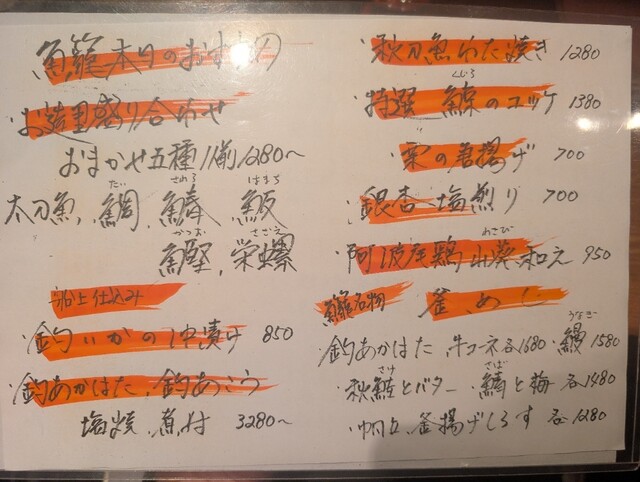 魚籠本日のおすすめ
お造里盛り合わせ
おまかせ五種1人前1280〜
太刀魚、鯛、鰆、魬
たい さわら はまち
鰹、栄螺
かつお さざえ
船上仕込み
釣いかの沖漬け 850
釣あかはた、釣あこう
塩焼、煮付 3280〜
・秋刀魚わた焼き 1280
・特選 鯨のユッケ 1380
くじら
・栗の唐揚げ 700
・銀杏塩煎り 700
・阿波尾鶏山葵和え 950
わさび
魚籠名物 釜めし
・釣あかはた、牛コーネ各1680・鰻 1580
うなぎ
・秋鮭とバター・鯖と梅 各1480
さけ さば
・帆立、釜揚げしらす 各1280